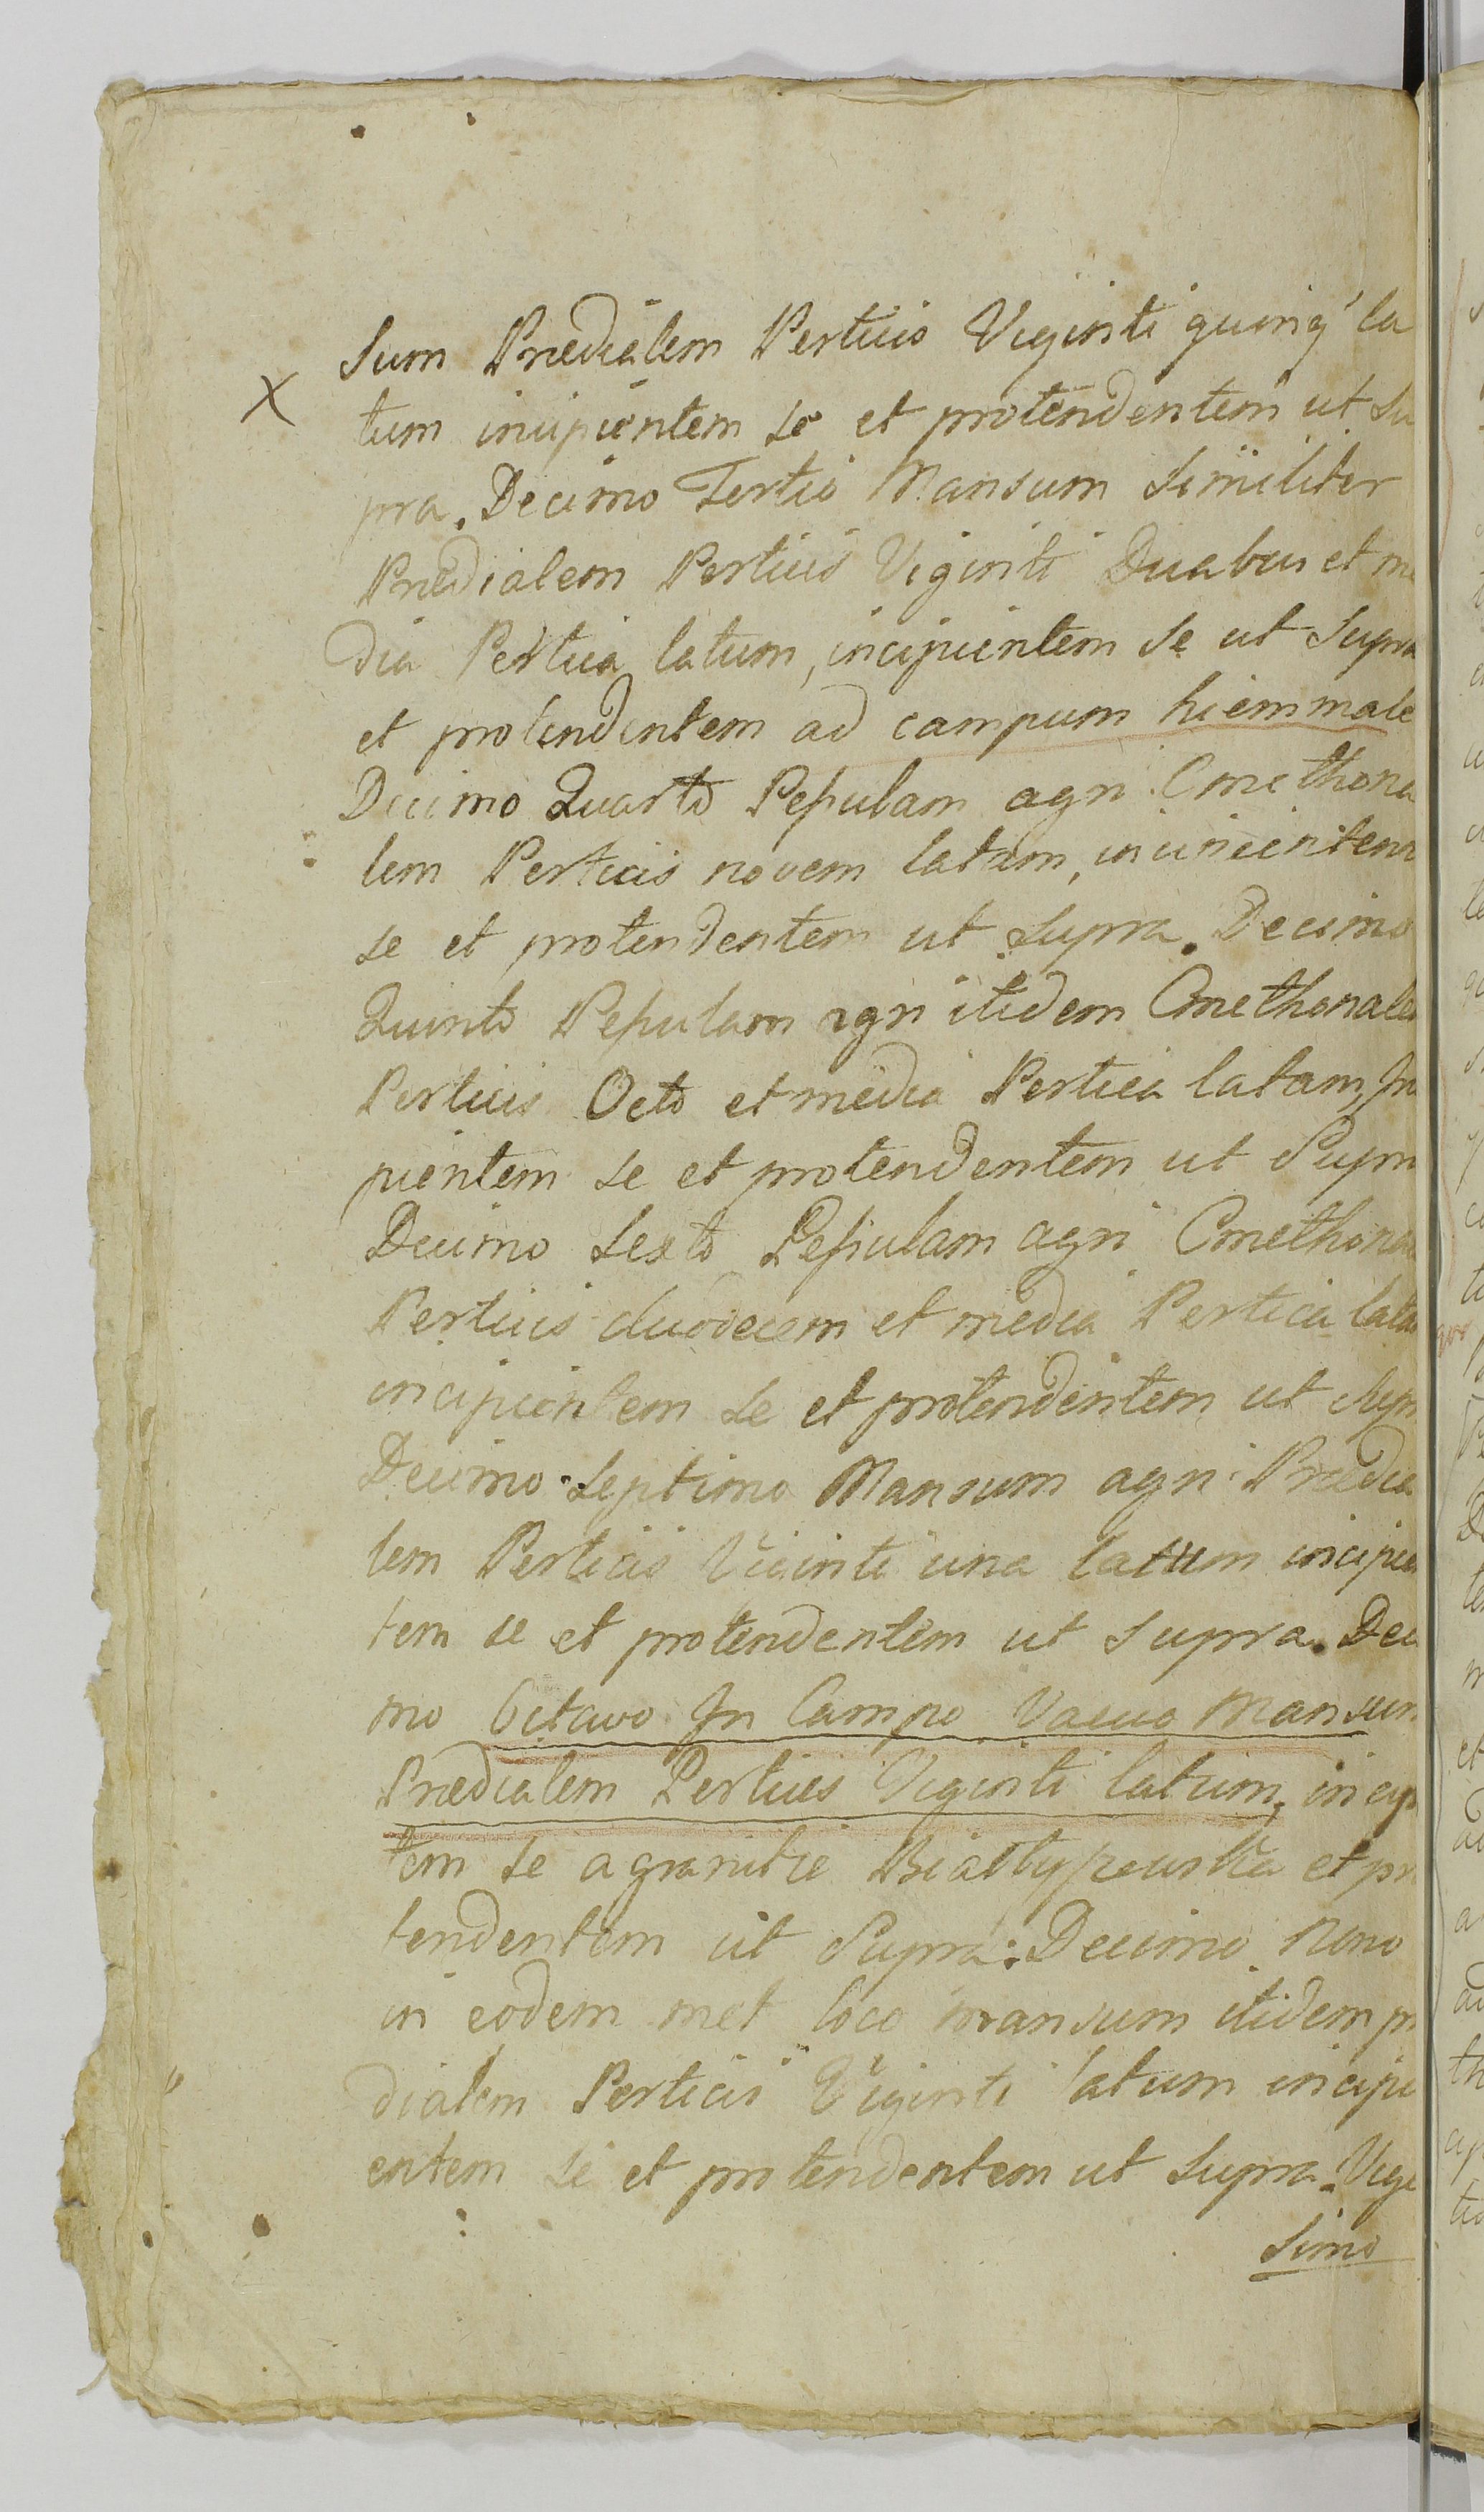 sum Prædialem Perticis Viginti quinq' la
X tum incipientem se et protendentem ut su
pra. Decimo Tertio Mansum Similiter
Prædialem Perticis Viginti Duabus et me
dia Pertica latum, incipientem se ut Supra
et protendentem ad campum hiemmale
Decimo Quarto Pepulam agri Cmethona
lem Perticis novem latam, incipientem
se et protendentem ut Supra. Decimo
Quinto Pepulam agri itidem Cmethonale
Perticis Octo et media Pertica latam, In
pientem se et protendentem ut Supra
Decimo Sexto Pepulam agri Cmethona
Perticis duodecem et media Pertica lata
incipientem se et protendentem ut Sup
Decimo Septimo Mansum agri Prædia
lem Perticis Viginti una latum incipien
tem se et protendentem ut supra. Deci
mo Octavo In Campo Vacuo Mansum
Prædialem Perticis Viginti latum, incip
tem se a granitie et pro
tendentem ut Supra: Decimo Nono
in eodem met loco mansum itidem pr
dialem Perticis Viginti latum incipi
entem se et protendentem ut Supra. Vige
simo